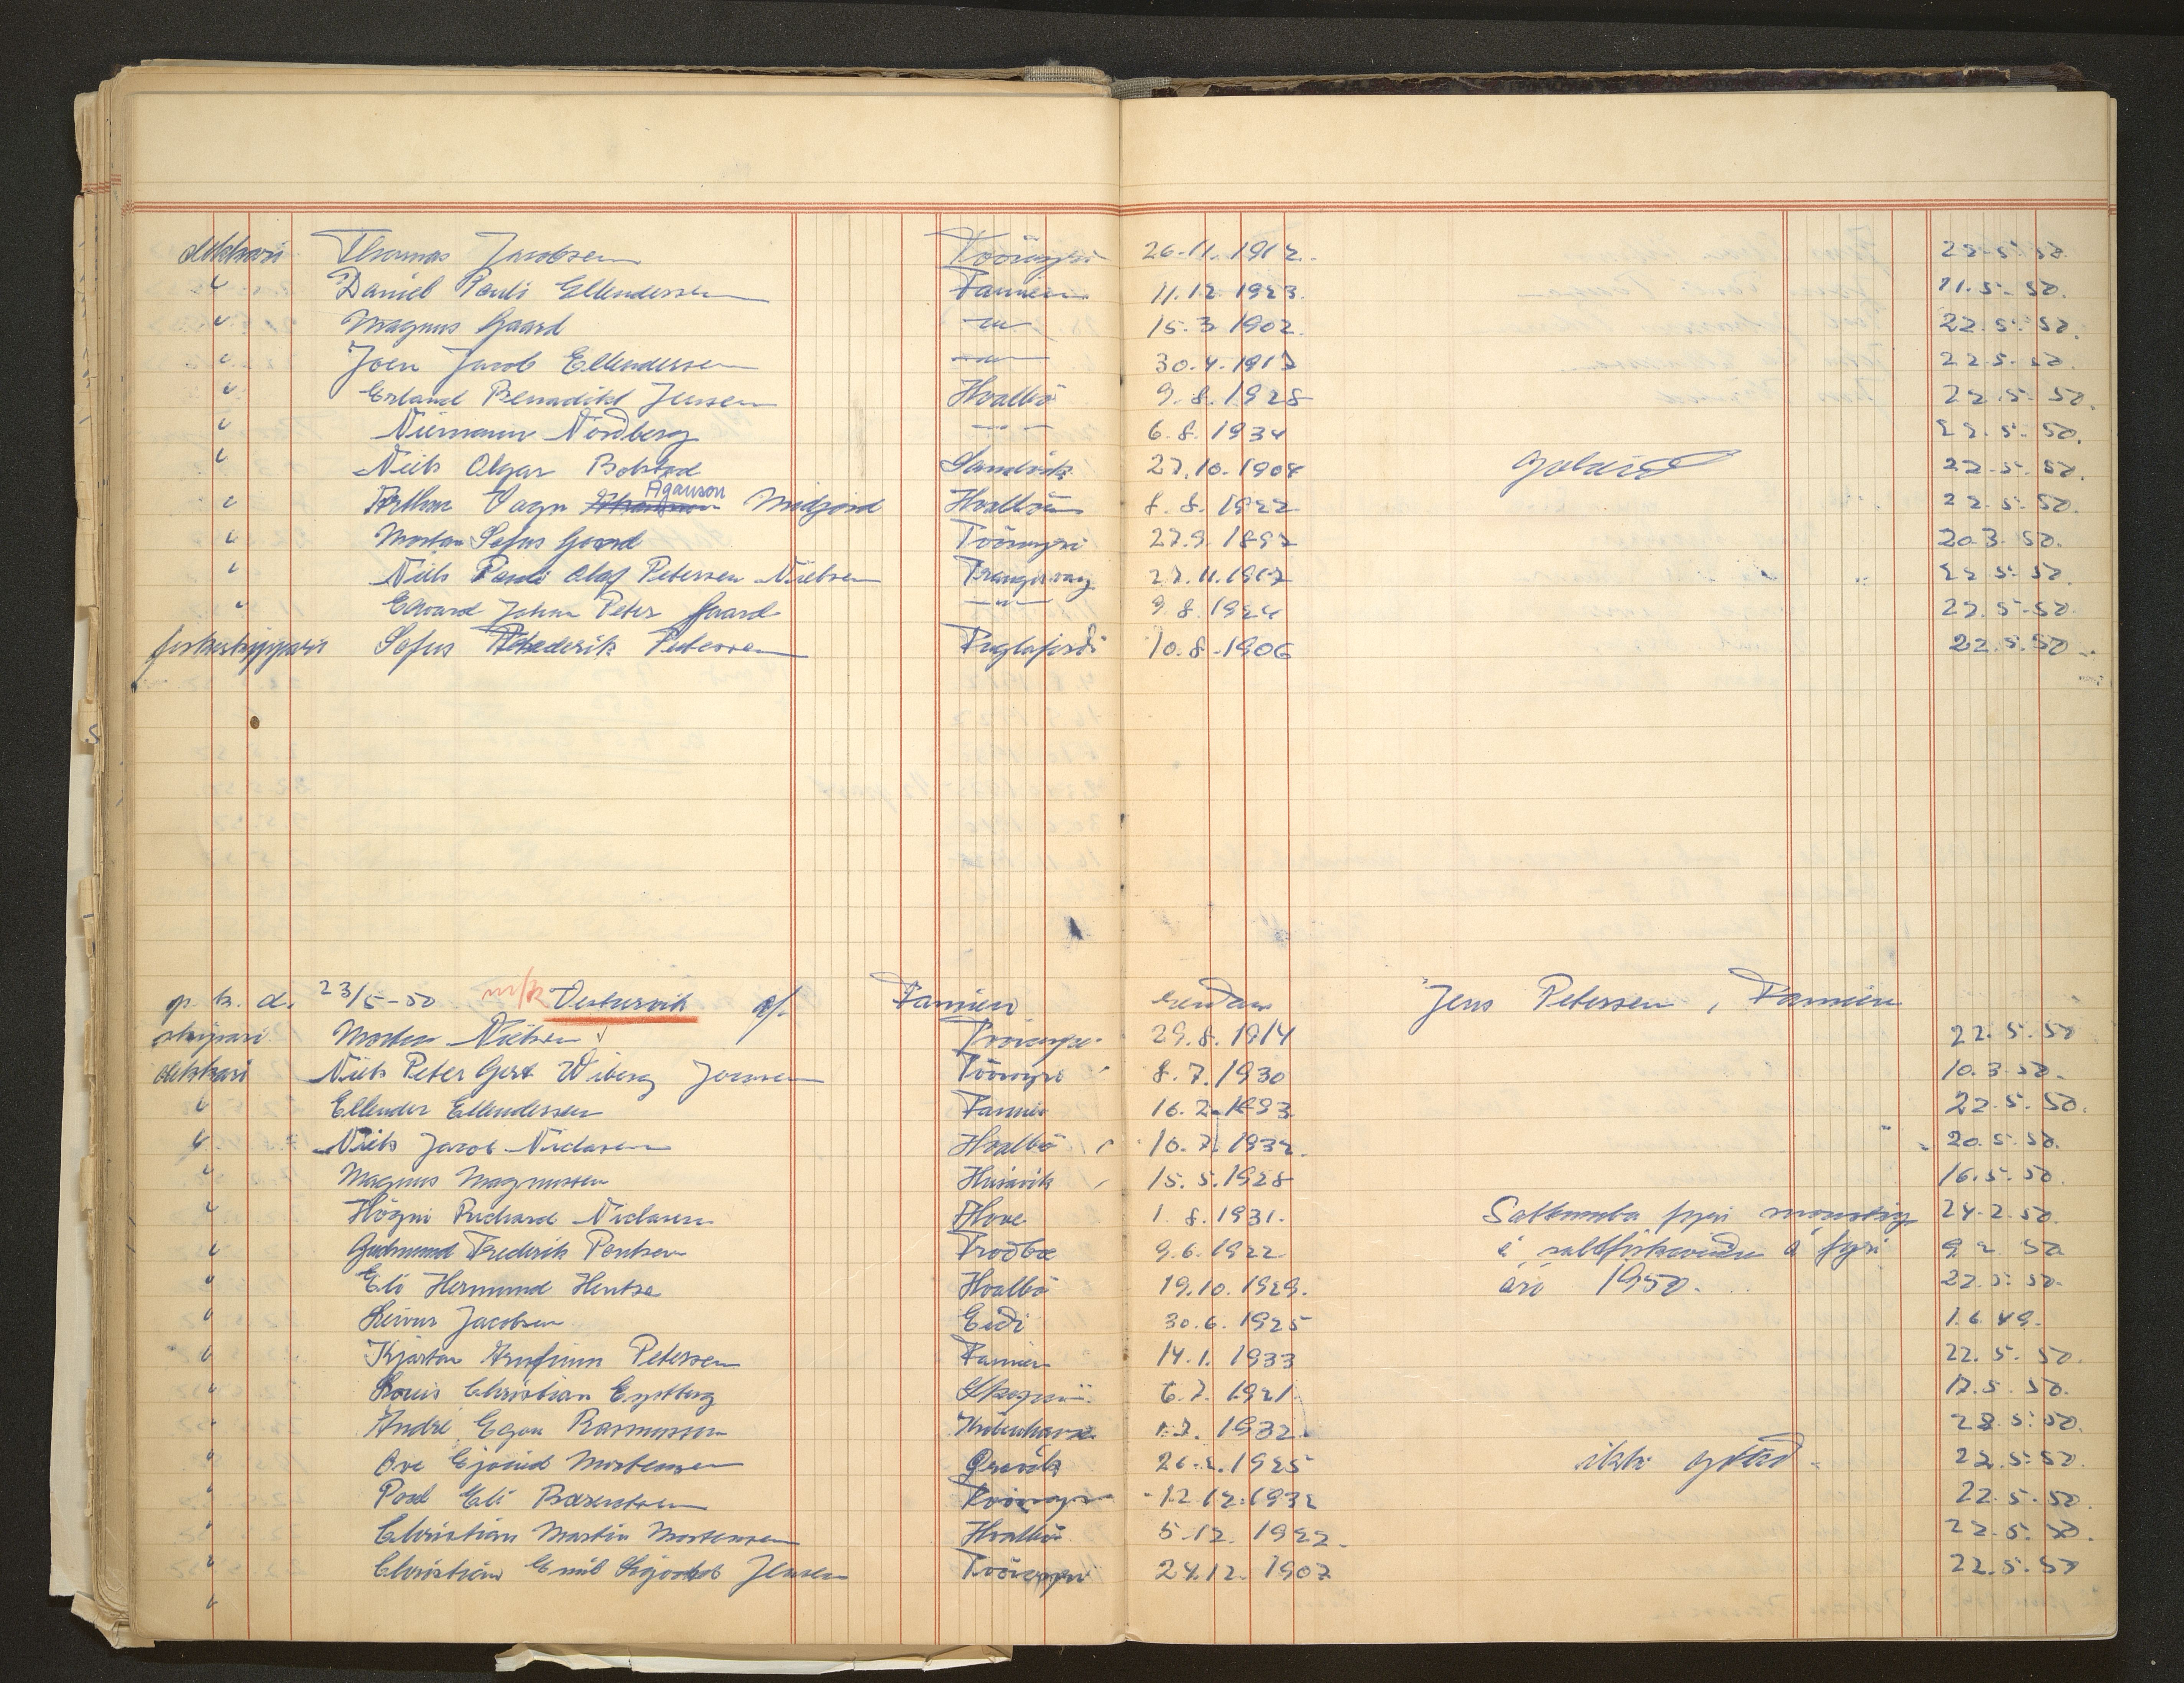 dekkari Thomas Jacobsen Tvöroyri 26.11.1912. 22.5.50.
" Daniel Pauli Ellendersen Famien 11.12.1923. 11.5.50.
" Magnus Gaard -"- 15.3.1902. 22.5.50.
" Joen Jacob Ellendersen -"- 30.4.1917 22.5.50
" Erland Benadikt Jensen Hvalbö 9.8.1928 22.5.50.
" Niemann Nördberg -"- 6.8.1934 22.5.50.
" Niels Olgar Bolstad Sandvik 27.10.1904 goldið 22.5.50.
" Arthur Vagn Aganson Midjord Hvalbö 8.8.1922 22.5.50.
" Morten Sofus Gaard Tvöroyri 27.9.1897 20.3.50.
" Niels Pauli Olaf Petersen Nielsen Trangisvaag 27.11.1917 22.5.50.
" Edvard Johan Peter Gaard -"- 9.8.1924 22.5.50
fiskeskippari Sofus Frederik Petersen Fuglafirdi 10.8.1906 22.5.50
p. k. d. 23/5-50 m/k Vesturvik a/. Famien sendan Jens Petersen, Famien
skipari Morten Nielsen Tvöroyri 29.8.1914 22.5.50
dekkari Niels Peter Gert Wiberg Joensen Tvöroyri 8.7.1930 10.3.50.
" Ellender Ellendersen Famien 16.2.1893 22.5.50.
" Niels Jacob Niclasen Hvalbö 10.7.1932. 20.5.50.
" Magnus Magnussen Husavik 15.5.1928 16.5.50.
" Högni Richard Niclasen Hove 1.8.1931. Saltkumba fyri mounstring 24.2.50.
" Gudmund Frederik Poulsen Frodbø 9.6.1922 á saltfiskaveiðu á fyri 9.2.50
" Eli Hermund Hentze Hvalbö 19.10.1929. ári 1950. 22.5.50.
" Leivur Jacobsen Eiði 30.6.1925 1.6.49.
" Kjartan Arnfinn Petersen Famien 14.1.1933 22.5.50.
" Louis Christian Eystberg 6.7.1921. 17.5.50.
" André Egon Rasmussen Köbenhavn 1.7.1932. 22.5.50.
" Ove Ejvind Mortensen Qrevik 26.2.1925 ikki goldið. 22.5.50.
" Poul Eli Bærentsen Tvöroyri 12.12.1932 22.5.50.
" Christian Martin Mortensen Hvalbö 5.12.1922. 22.5.50.
" Christian Emil Jensen Tvöroyri 24.12.1907 22.5.50
"